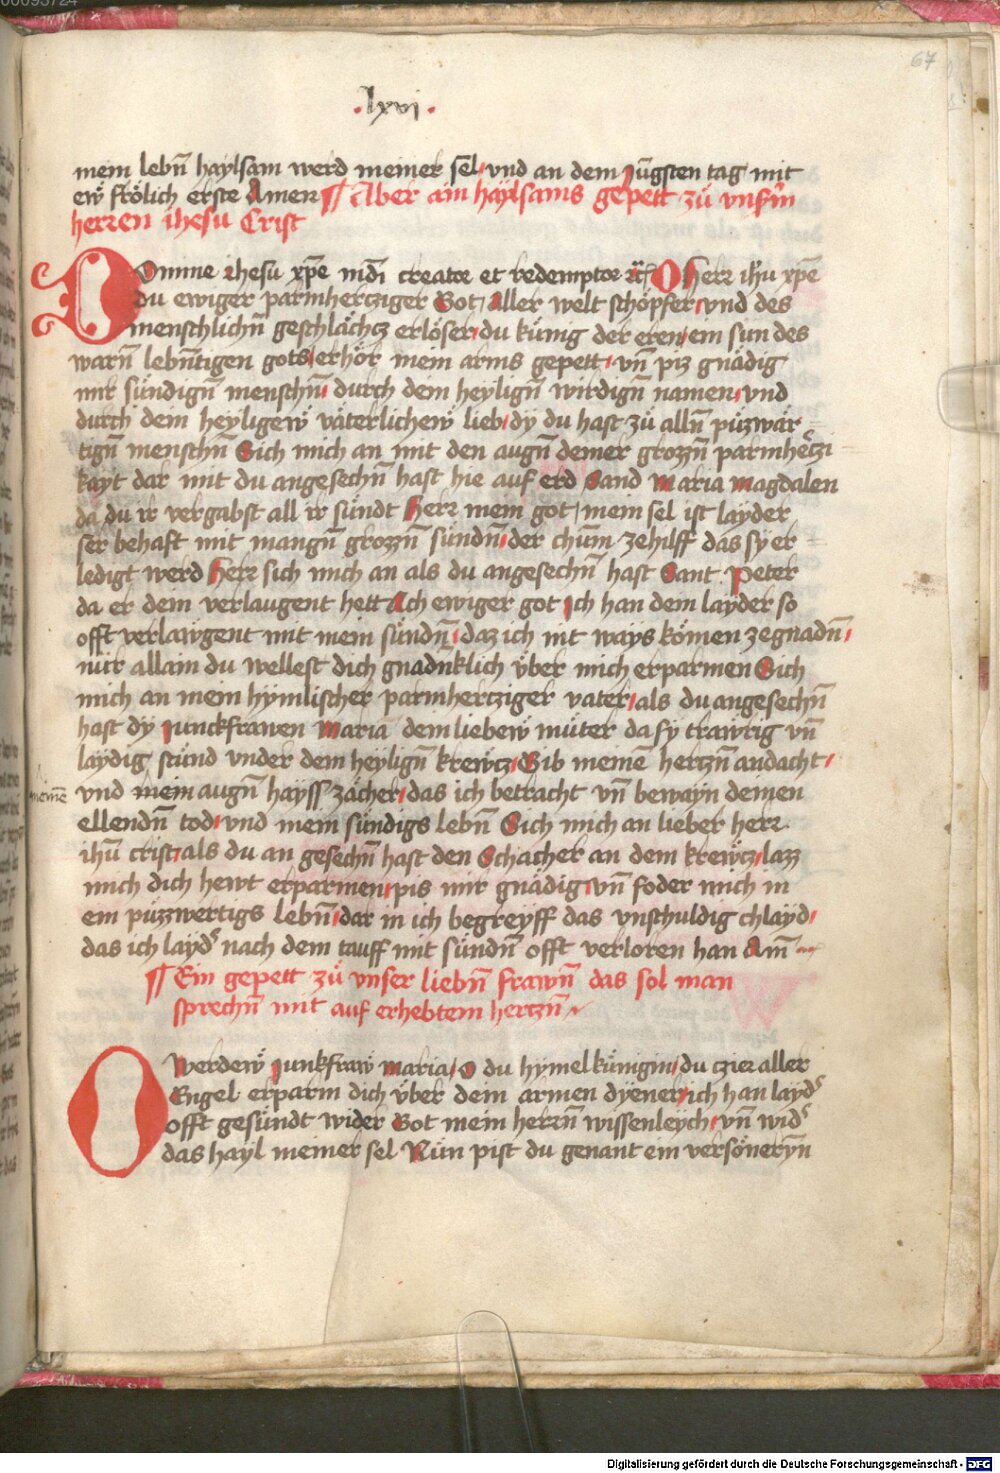 67
·lxvi·
mein lebn̄ haylsam werd meiner sel und an dem Jūgsten tag mit
ew̎ frölich erste Amen ¶ Aber ain haylsams gepett zů vnserm̄
herren ihesu Crist
Domine ihesu xp̄e mdī creator et redemptor rc̄ O herr ih̄u xp̄e
du ewiger parmhercziger Got Aller welt schöpfer vnd des
menschlichn̄ geschlächcz erlöser du künig der eren ein sun des
warn̄ lebn̄tigen gots erhör mein arms gepett vn̄ piz gnädig
mir sündign̄ menschn̄ durch dein heylign̄ wirdign̄ namen vnd
durch dein heyligew̎ väterlichew̎ lieb dÿ du hast zů alln̄ püzwär
tign̄ menschn̄ Sich mich an mit den augn̄ deiner grozzn̄ parmherczi
kayt dar mit du angesechn̄ hast hie auf erd Sand Maria Magdalen
da du ir vergabst all ir sündt Herr mein got mein sel ist layder
ser behaft mit mangn̄ grozzn̄ sündn̄ der chum̄ zehilff das sy er
ledigt werd Herr sich mich an als du angesechn̄ hast Sant Peter
da er dein verlaugent hett Ach ewiger got Ich han dein layder so
offt verlawgent mit mein sündn̄ daz ich nit ways kömen zegnadn̄
nur allain du wellest dich gnadnklich über mich erparmen Sich
mich an mein hymlischer parmhercziger vater als du angesechn̄
hast dÿ Junckfrawen Maria dein liebew̎ müter da sy trawrig vn̄
laydig stünd vnder dem heylign̄ krewcz Gib meinē herczn̄ andacht
meinē
vnd mein augn̄ hayss zächer das ich betracht vn̄ bewayn deinen
ellendn̄ tod vnd mein sündigs lebn̄ Sich mich an lieber herr
ih̄u crist als du an gesechn̄ hast den Schacher an dem krewcz lazz
mich dich hewt erparmen pis mir gnädig vn̄ foder mich in
ein püzzwertigs lebn̄ dar in ich begreyff das vnschuldig chlayd
das ich layd͛ nach dem tauff mit sündn̄ offt verloren han Am̄
¶ Ein gepett zů vnser liebn̄ frawn̄ das sol man
sprechn̄ mit auf erhebtem herczn̄
O Werdew̎ Junkfraw̎ Maria O du hymelkünigin du czier aller
Engel erparm dich über dein armen dyener ich han layd͛
offt gesündt wider Got mein herrn̄ wissenleych vn̄ wid͛
das hayl meiner sel Nun pist du genant ein versöneryn̄
Digitalisierung gefördert durch die Deutsche Forschungsgemeinschaft - DFG